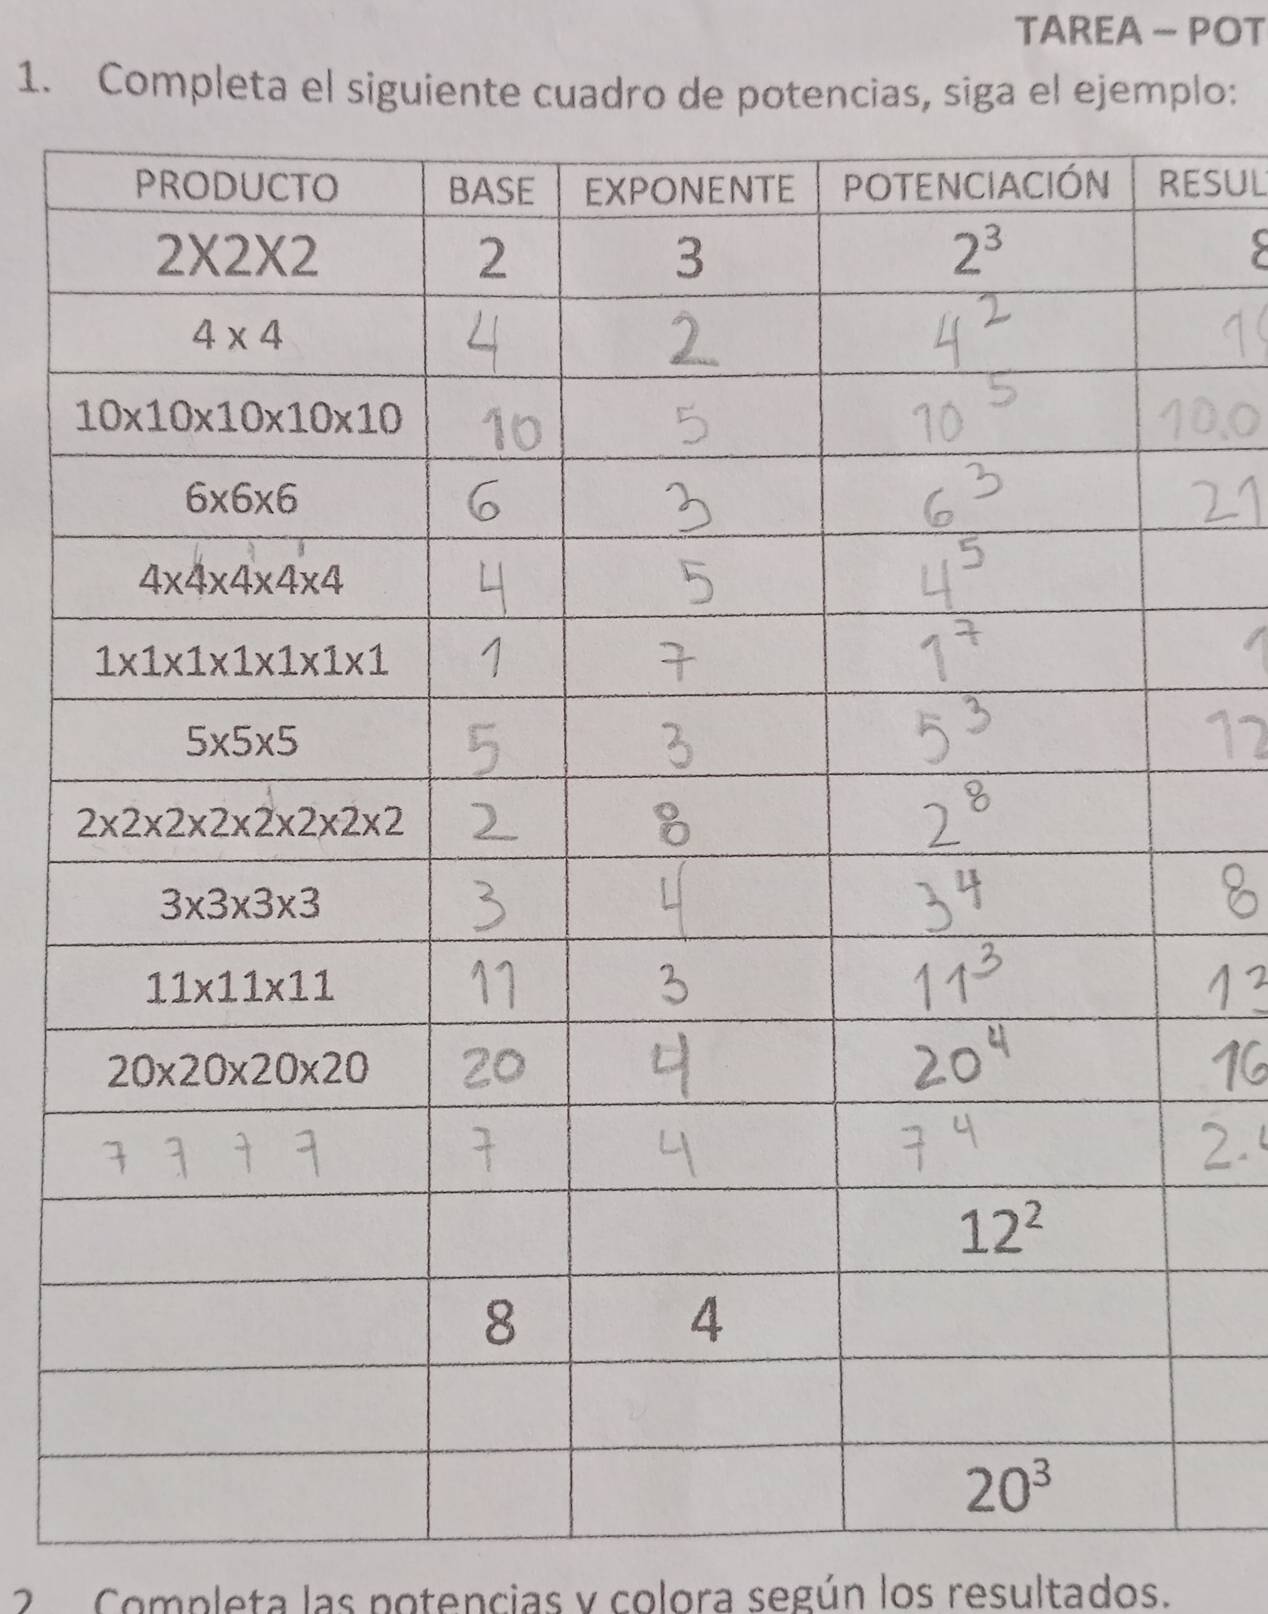 TAREA – POT
1. Completa el siguiente cuadro de potencias, siga el ejemplo:
PRODUCTO BASE EXPONENTE POTENCIACIÓN RESUL
2X2X2 2 3 2³ 8
4 x 4 4 2 4²
10x10x10x10x10 10 5 10⁵ 10.0
6x6x6 6 3 6³ 21
4x4x4x4x4 4 5 4⁵
1x1x1x1x1x1x1 1 7 1⁷ 1
5x5x5 5 3 5³ 12
2x2x2x2x2x2x2x2 2 8 2⁸
3x3x3x3 3 4 3⁴ 8
11x11x11 11 3 11³ 13
20x20x20x20 20 4 20⁴ 16
7 7 7 7 7 4 7⁴ 2.
12²
8 4
20³
2 Completa las potencias y colora según los resultados.